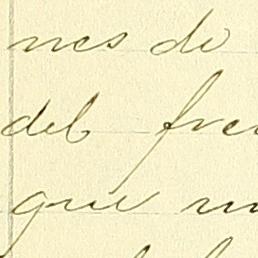 nes de
del fre
que